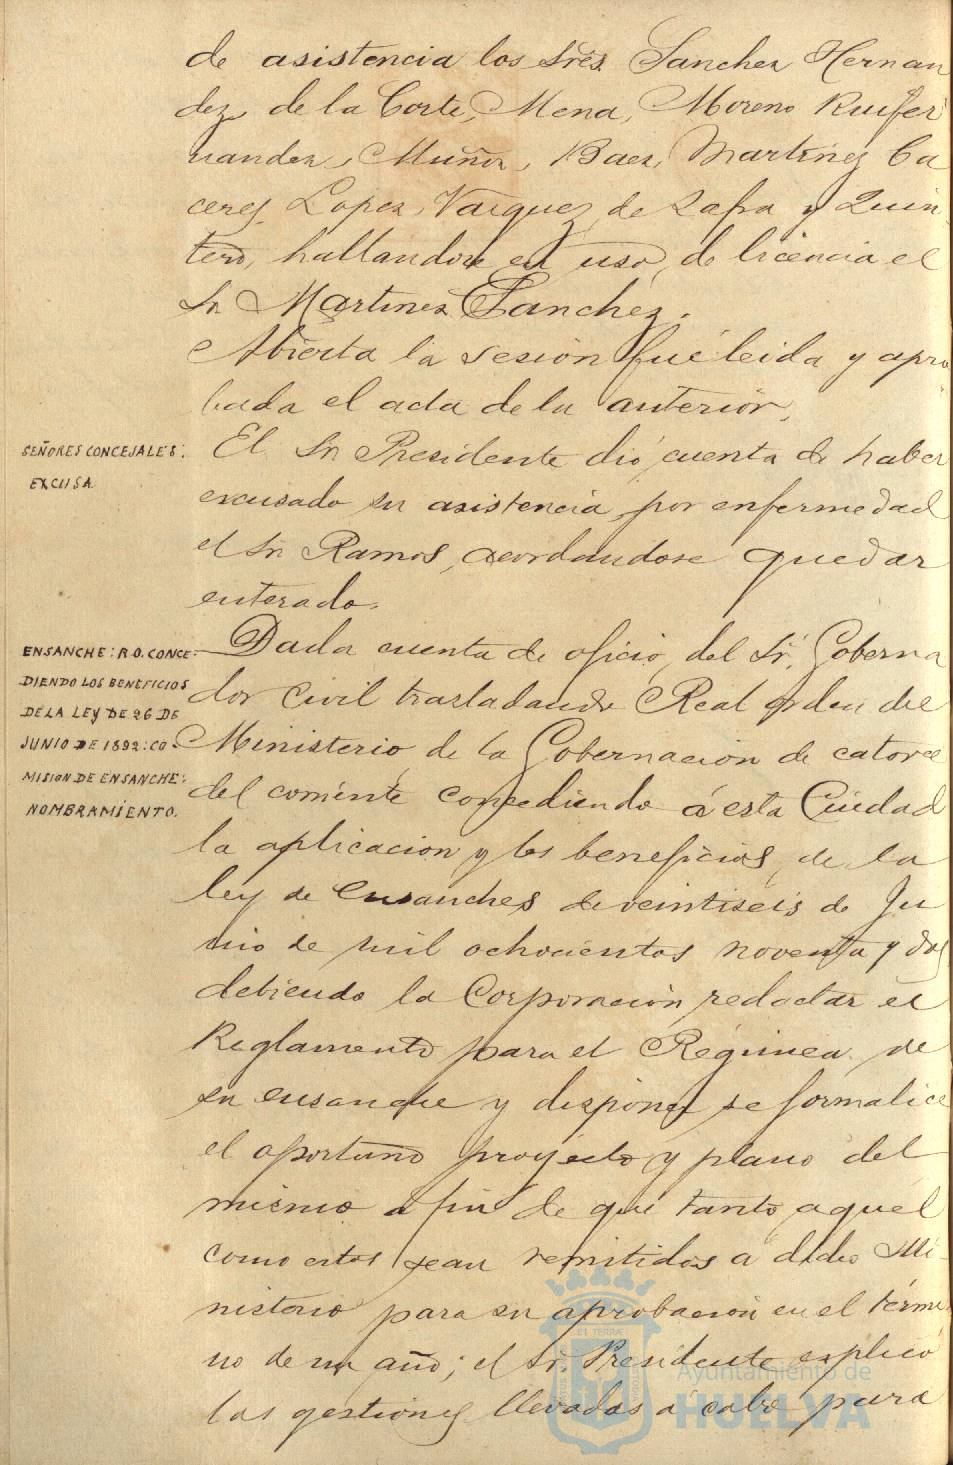 de asistencia los Sres Sanchez Hernan
dez, de la Corte, Mena, Moreno Ruifer
nandez, Muñoz, Baez, Martinez Ca
ceres, Lopez, Vazquez de Zafra y Quin
tero, hallandose en uso de licencia el
Sr Martinez Sanchez.
Abierta la sesión fué leida y apro
bada el acta de la anterior.
SEÑORES CONCEJALES:
EXCUSA
El Sr Presidente dió cuenta de haber
excusado su asistencia por enfermedad
el Sr Ramos, acordandose quedar
enterado.
ENSANCHE: R.O. CONCE-
DIENDO LOS BENEFICIOS
DE LA LEY DE 26 DE
JUNIO DE 1892: CO-
MISION DE ENSANCHE:
NOMBRAMIENTO.
Dada cuenta de oficio del Sr. Goberna
dor Civil trasladando Real orden del
Ministerio de la Gobernacion de catorce
del corriente concediendo á esta Ciudad
la aplicacion y los beneficios de la
ley de ensanches de veintiseis de Ju
nio de mil ochocientos noventa y dos
debiendo la Corporación redactar el
Reglamento para el Régimen de
su ensanche y disponer se formalice
el oportuno proyecto y plano del
mismo a fin de que tanto aquel
como estos sean remitidos á dicho Mi-
nisterio para su aprobación en el térmi
no de un año; el Sr. Presidente explicó
las gestiones llevadas á cabo para
Ayuntamiento de
HUELVA